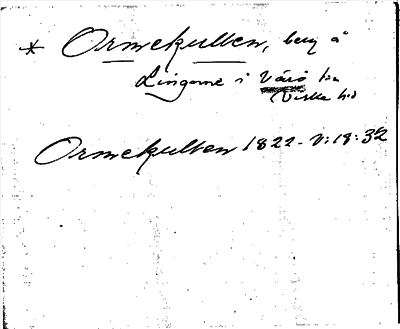 * Ormekullen, berg å
Lingome i Värö sn
Viske hd
Ormekullen 1822 - V: 18: 32